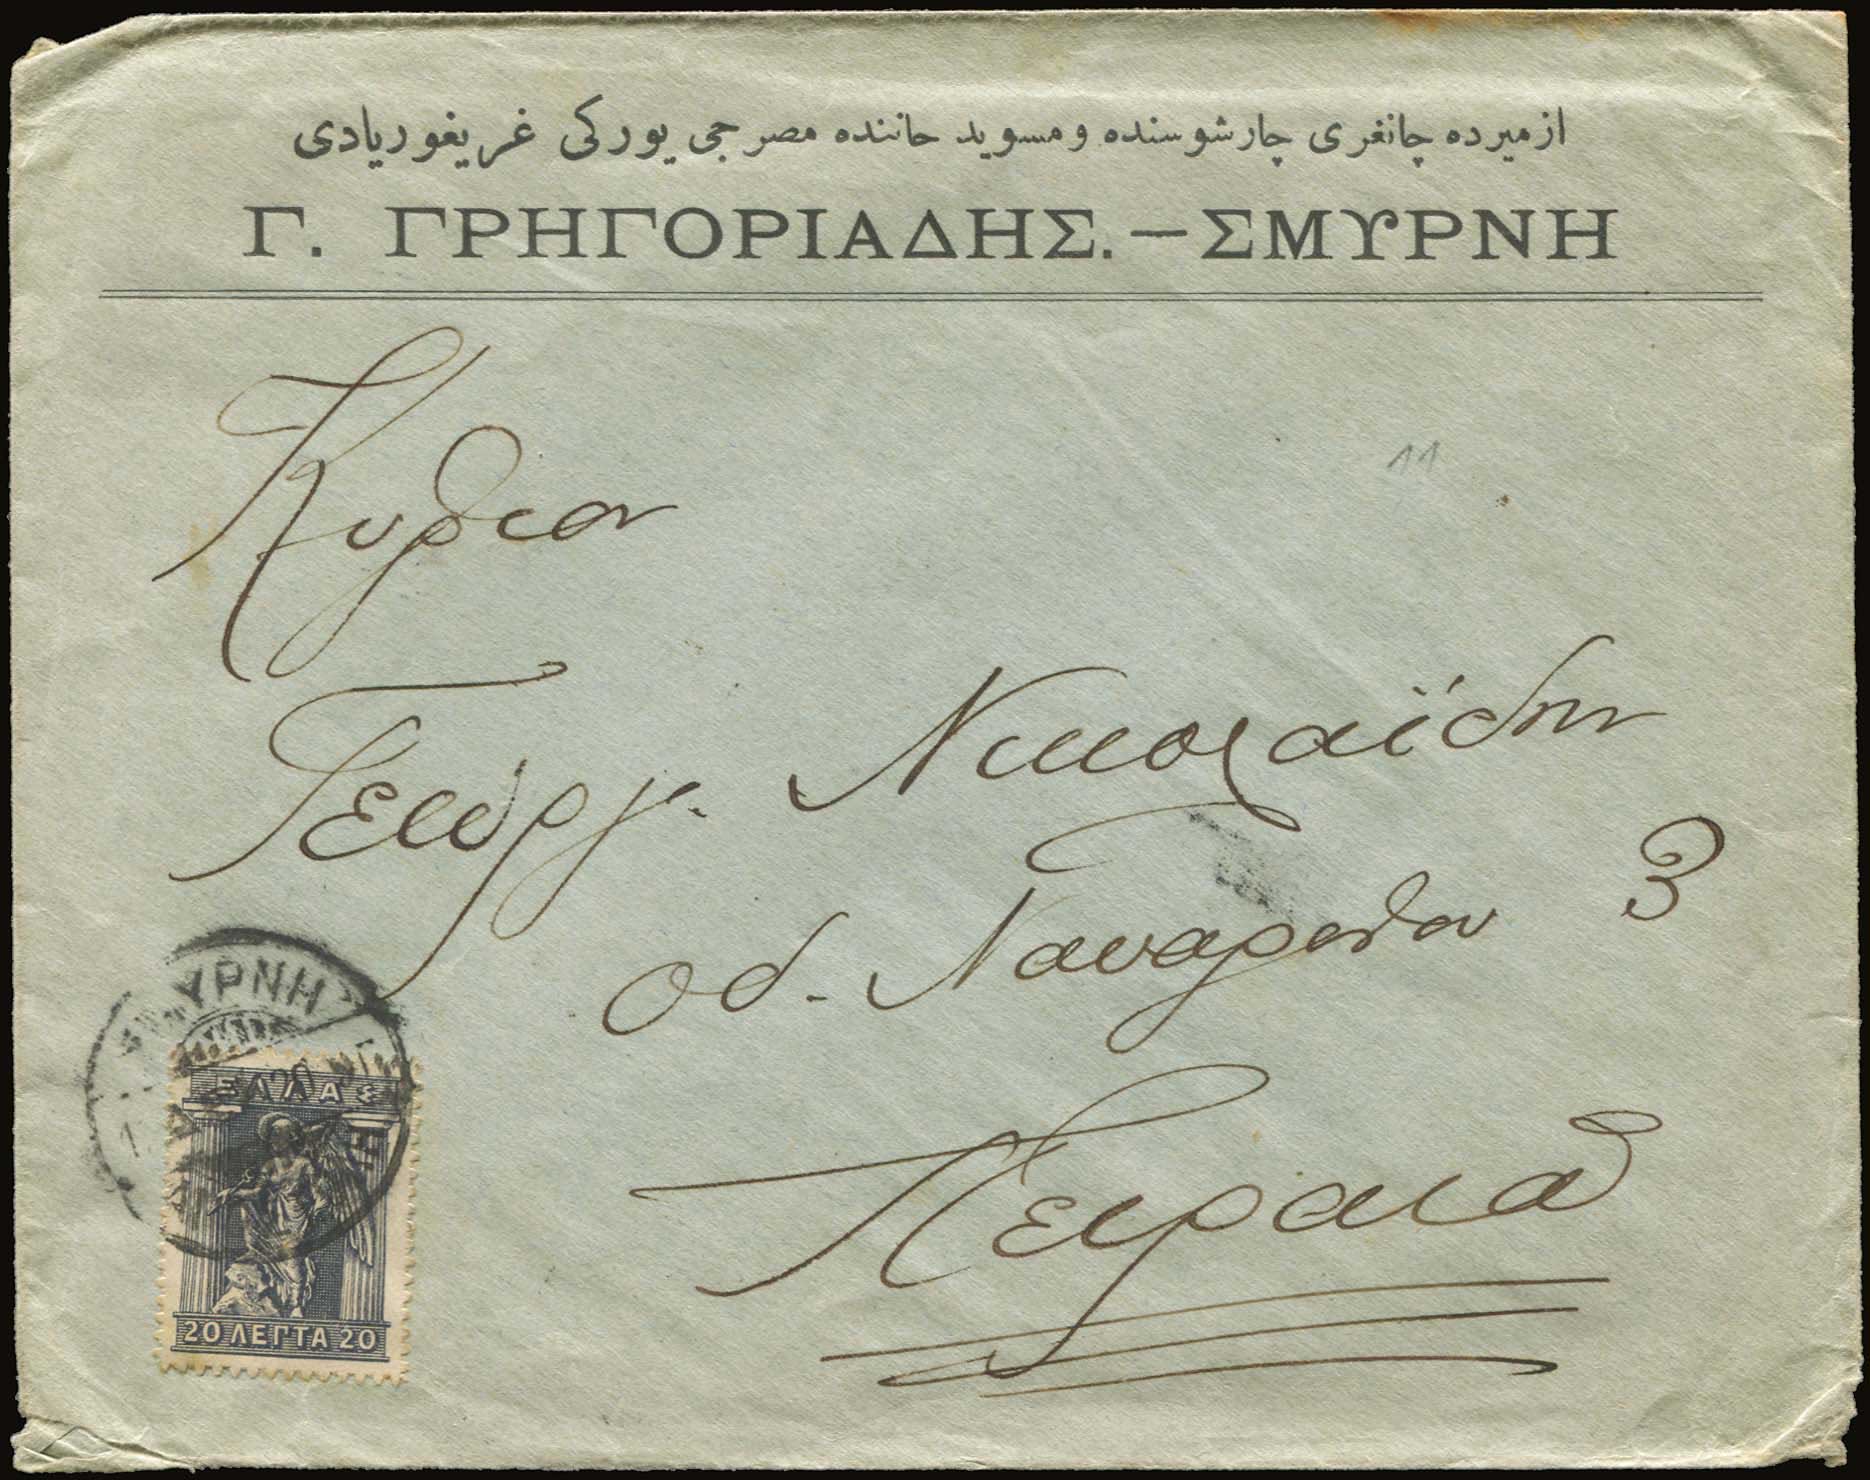 ازمیرده چانغری چارشوسنده ومسوید خاننده مصرجی یورکی غریغوریادی
Γ. ΓΡΗΓΟΡΙΑΔΗΣ.—ΣΜΥΡΝΗ
11
Κύριον
Γεώργ. Νικολαΐδην
οδ. Ναυαρίνου 3
Πειραιά
ΣΜΥΡΝΗ
ΕΛΛΑΣ
20 ΛΕΠΤΑ 20